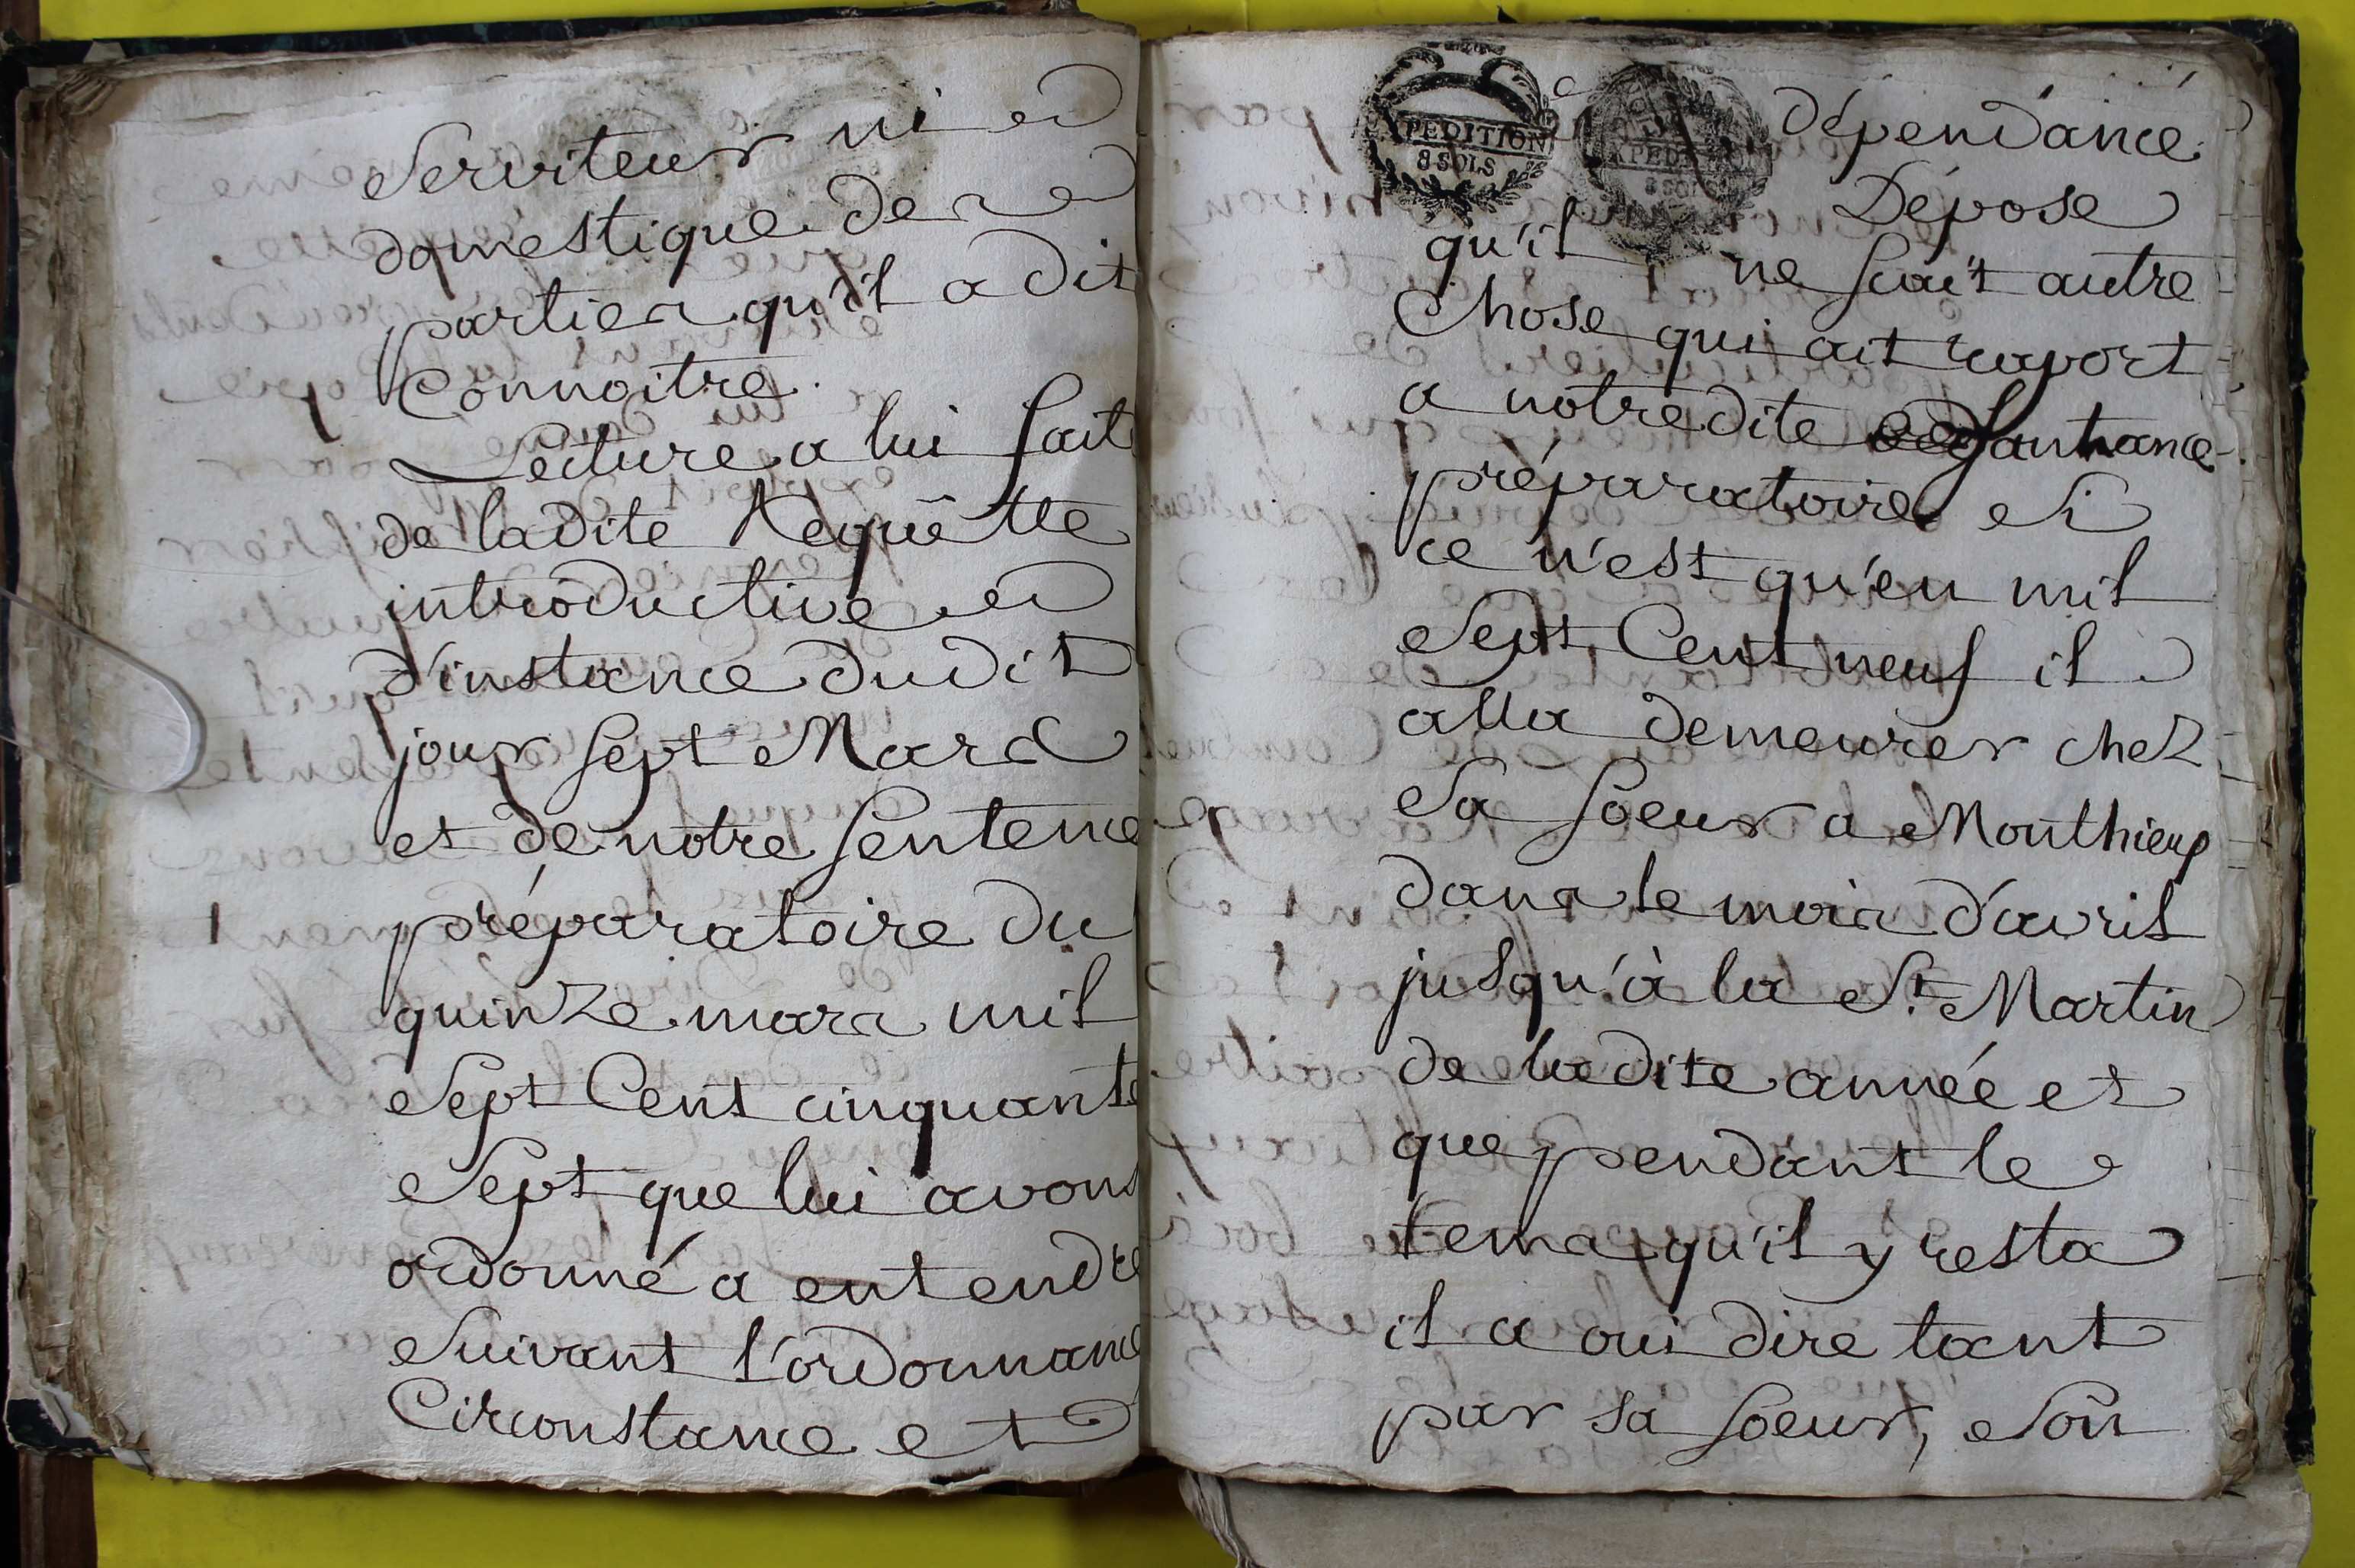 Serviteur ni
domestique des
parties qu'il a dit
Connoitre.
Lecture a lui fait
de ladite Requête
introductive
d'instance dudit
jour sept Mars
et de notre sentence
préparatoire du
quinze mars mil
Sept Cent cinquante
Sept que lui avons
ordonné a entendre
Suivant l'ordonnance
Circonstance et
EXPEDITION
8 SOLS
EXPEDITION
8 SOLS
dépendance.
Dépose
qu'il ne sçait autre
Chose qui ait raport
a notredite
préparatoire Si
ce n'est qu'en mil
Sept Cent neuf il
alla demeurer chez
Sa soeur a Monthieux
dans le mois d'avril
jusqu'à la St. Martin
de ladite année et
que pendant le
tems qu'il y resta
il a oui dire tant
par sa soeur, Son